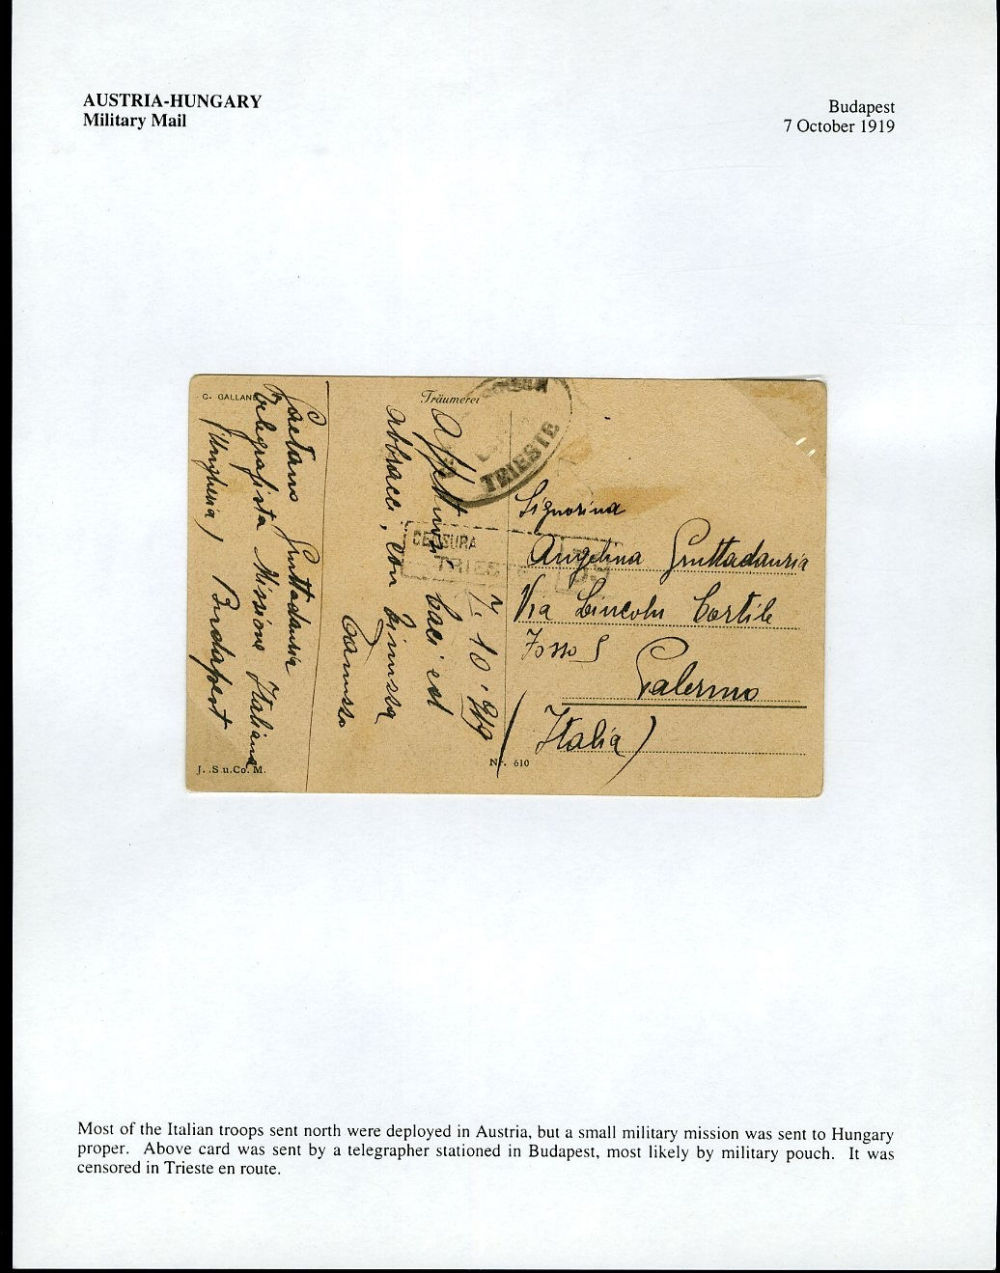 AUSTRIA-HUNGARY
Military Mail
Budapest
7 October 1919
C. GALLAND
Träumerei
Gaetano Guttadauria
Telegrafista Missione Italiana
(Ungheria) Budapest
7. 10. 919
baci ed
abbracci, con
TRIESTE
CENSURA
TRIESTE
Signorina
Angelina Guttadauria
Via Lincoln Cortile
Palermo
(Italia)
J. .S.u.Co. M.
Nr. 610
Most of the Italian troops sent north were deployed in Austria, but a small military mission was sent to Hungary
proper. Above card was sent by a telegrapher stationed in Budapest, most likely by military pouch. It was
censored in Trieste en route.